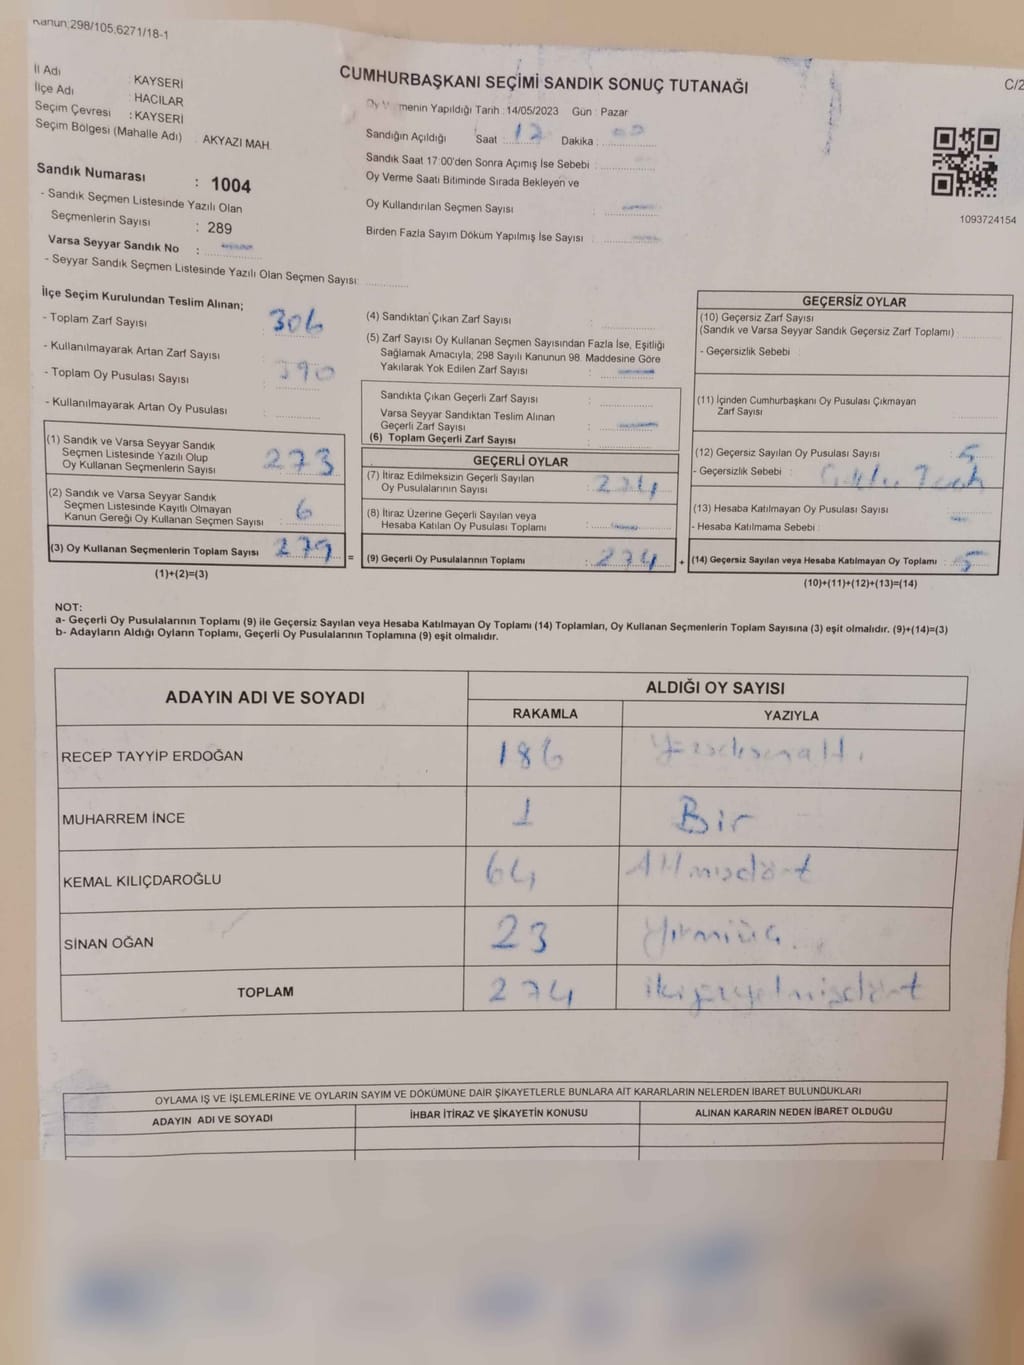 Kanun:298/105,6271/18-1
CUMHURBAŞKANI SEÇİMİ SANDIK SONUÇ TUTANAĞI
C/2
İl Adı : KAYSERİ
İlçe Adı : HACILAR
Seçim Çevresi : KAYSERİ
Seçim Bölgesi (Mahalle Adı) : AKYAZI MAH.
Sandık Numarası : 1004
- Sandık Seçmen Listesinde Yazılı Olan
Seçmenlerin Sayısı : 289
Varsa Seyyar Sandık No :
- Seyyar Sandık Seçmen Listesinde Yazılı Olan Seçmen Sayısı:
Oy Verme menin Yapıldığı Tarih :14/05/2023 Gün : Pazar
Sandığın Açıldığı Saat : 17 Dakika : 00
Sandık Saat 17:00'den Sonra Açımış İse Sebebi :
Oy Verme Saati Bitiminde Sırada Bekleyen ve
Oy Kullandırılan Seçmen Sayısı :
Birden Fazla Sayım Döküm Yapılmış İse Sayısı :
1093724154
İlçe Seçim Kurulundan Teslim Alınan;
- Toplam Zarf Sayısı : 306
- Kullanılmayarak Artan Zarf Sayısı :
- Toplam Oy Pusulası Sayısı : 390
- Kullanılmayarak Artan Oy Pusulası :
(1) Sandık ve Varsa Seyyar Sandık
Seçmen Listesinde Yazılı Olup
Oy Kullanan Seçmenlerin Sayısı : 273
(2) Sandık ve Varsa Seyyar Sandık
Seçmen Listesinde Kayıtlı Olmayan
Kanun Gereği Oy Kullanan Seçmen Sayısı : 6
(3) Oy Kullanan Seçmenlerin Toplam Sayısı : 279
(1)+(2)=(3)
(4) Sandıktan Çıkan Zarf Sayısı :
(5) Zarf Sayısı Oy Kullanan Seçmen Sayısından Fazla İse, Eşitliği
Sağlamak Amacıyla, 298 Sayılı Kanunun 98. Maddesine Göre
Yakılarak Yok Edilen Zarf Sayısı :
Sandıkta Çıkan Geçerli Zarf Sayısı :
Varsa Seyyar Sandıktan Teslim Alınan
Geçerli Zarf Sayısı :
(6) Toplam Geçerli Zarf Sayısı :
GEÇERLİ OYLAR
(7) İtiraz Edilmeksizin Geçerli Sayılan
Oy Pusulalarının Sayısı : 274
(8) İtiraz Üzerine Geçerli Sayılan veya
Hesaba Katılan Oy Pusulası Toplamı :
= (9) Geçerli Oy Pusulalarının Toplamı : 274
GEÇERSİZ OYLAR
(10) Geçersiz Zarf Sayısı
(Sandık ve Varsa Seyyar Sandık Geçersiz Zarf Toplamı) :
- Geçersizlik Sebebi :
(11) İçinden Cumhurbaşkanı Oy Pusulası Çıkmayan
Zarf Sayısı :
(12) Geçersiz Sayılan Oy Pusulası Sayısı : 5
- Geçersizlik Sebebi :
(13) Hesaba Katılmayan Oy Pusulası Sayısı :
- Hesaba Katılmama Sebebi :
+ (14) Geçersiz Sayılan veya Hesaba Katılmayan Oy Toplamı : 5
(10)+(11)+(12)+(13)=(14)
NOT:
a- Geçerli Oy Pusulalarının Toplamı (9) ile Geçersiz Sayılan veya Hesaba Katılmayan Oy Toplamı (14) Toplamları, Oy Kullanan Seçmenlerin Toplam Sayısına (3) eşit olmalıdır. (9)+(14)=(3)
b- Adayların Aldığı Oyların Toplamı, Geçerli Oy Pusulalarının Toplamına (9) eşit olmalıdır.
ADAYIN ADI VE SOYADI ALDIĞI OY SAYISI
RAKAMLA YAZIYLA
RECEP TAYYİP ERDOĞAN 186 Yüzseksenaltı
MUHARREM İNCE 1 Bir
KEMAL KILIÇDAROĞLU 64 Altmışdört
SİNAN OĞAN 23 Yirmiüç
TOPLAM 274 ikiyüzyetmişdört
OYLAMA İŞ VE İŞLEMLERİNE VE OYLARIN SAYIM VE DÖKÜMÜNE DAİR ŞİKAYETLERLE BUNLARA AİT KARARLARIN NELERDEN İBARET BULUNDUKLARI
ADAYIN ADI VE SOYADI İHBAR İTİRAZ VE ŞİKAYETİN KONUSU ALINAN KARARIN NEDEN İBARET OLDUĞU